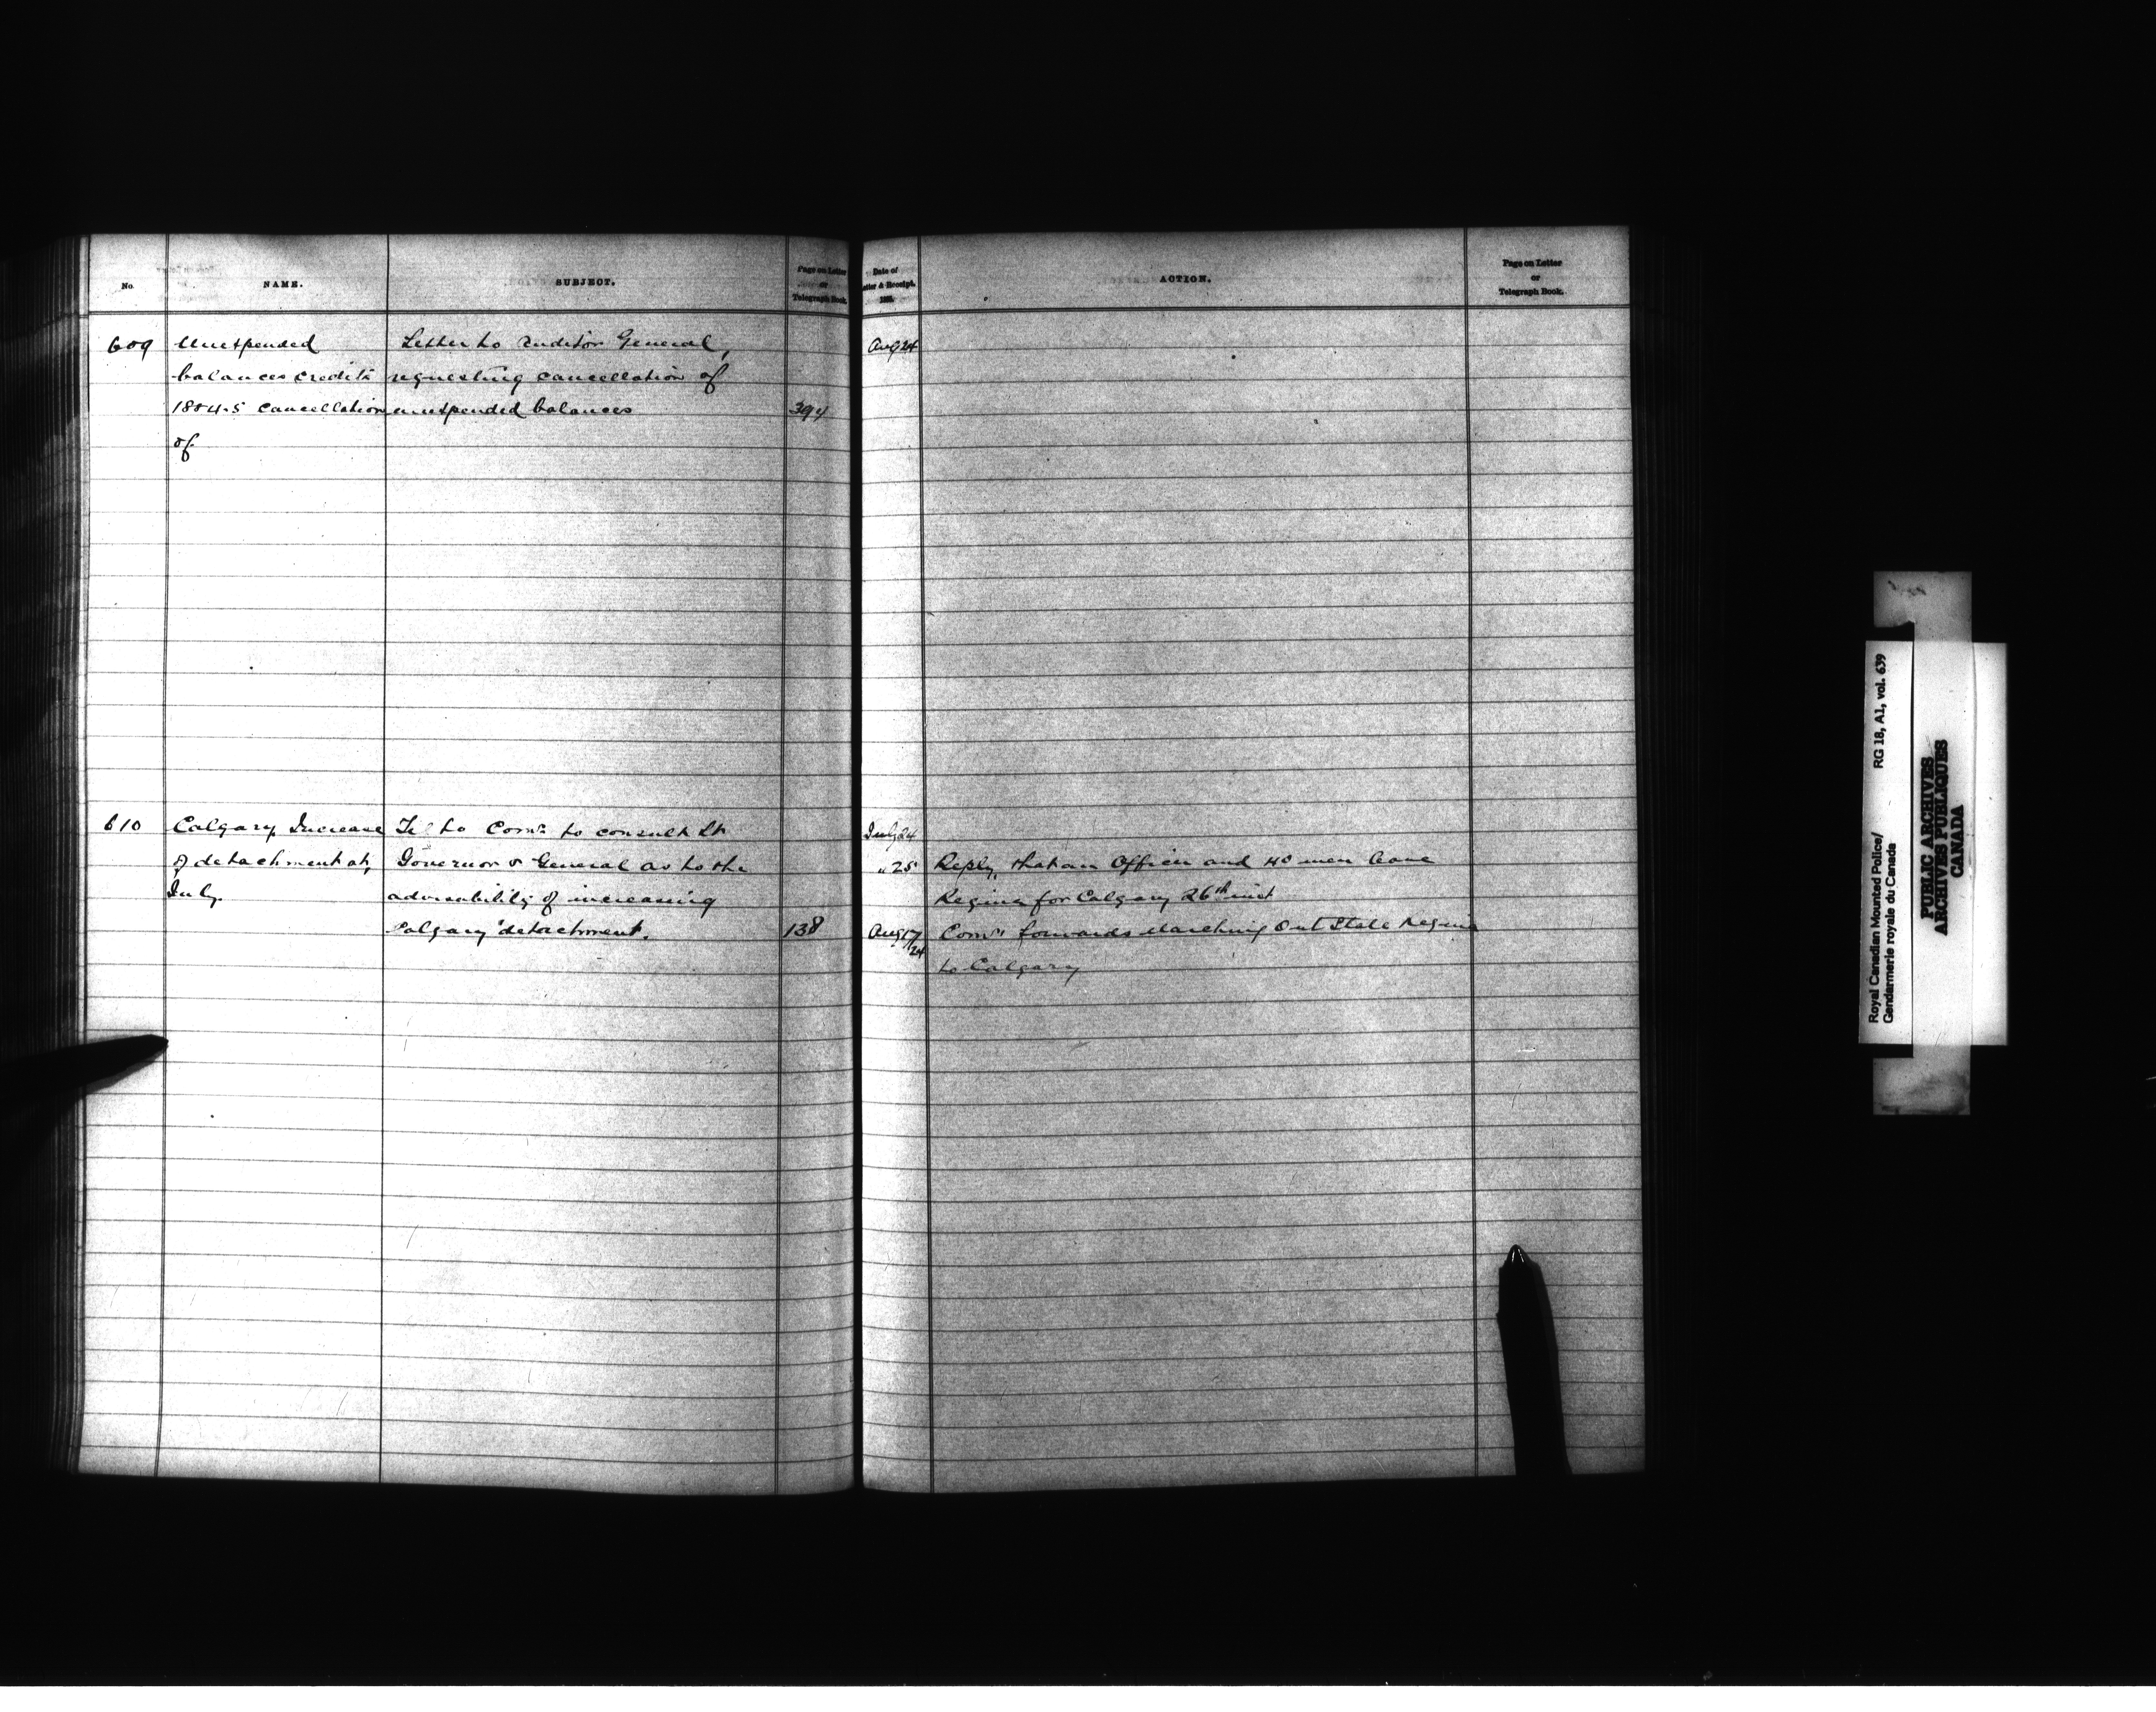 No.
NAME.
SUBJECT.
Page on Letter
or
Telegraph Book.
Date of
Letter & Receipt.
1885.
ACTION.
Page on Letter
or
Telegraph Book.
609 Unexpended Letter to Auditor General, Aug 24
balances credits requesting cancellation of
1884-5 cancellation unexpended balances 394
of
610 Calgary Increase Tel to Comr. to consult Lt July 24
of detachment at, Governor & General as to the " 25 Reply, that an Officer and 40 men leave
July. advisability of increasing Regina for Calgary 26th inst
Calgary detachment. 138 Aug 17/24 Comr. forwards Marching Out State Regina
to Calgary
Royal Canadian Mounted Police/
Gendarmerie royale du Canada
RG 18, A1, vol. 639
PUBLIC ARCHIVES
ARCHIVES PUBLIQUES
CANADA